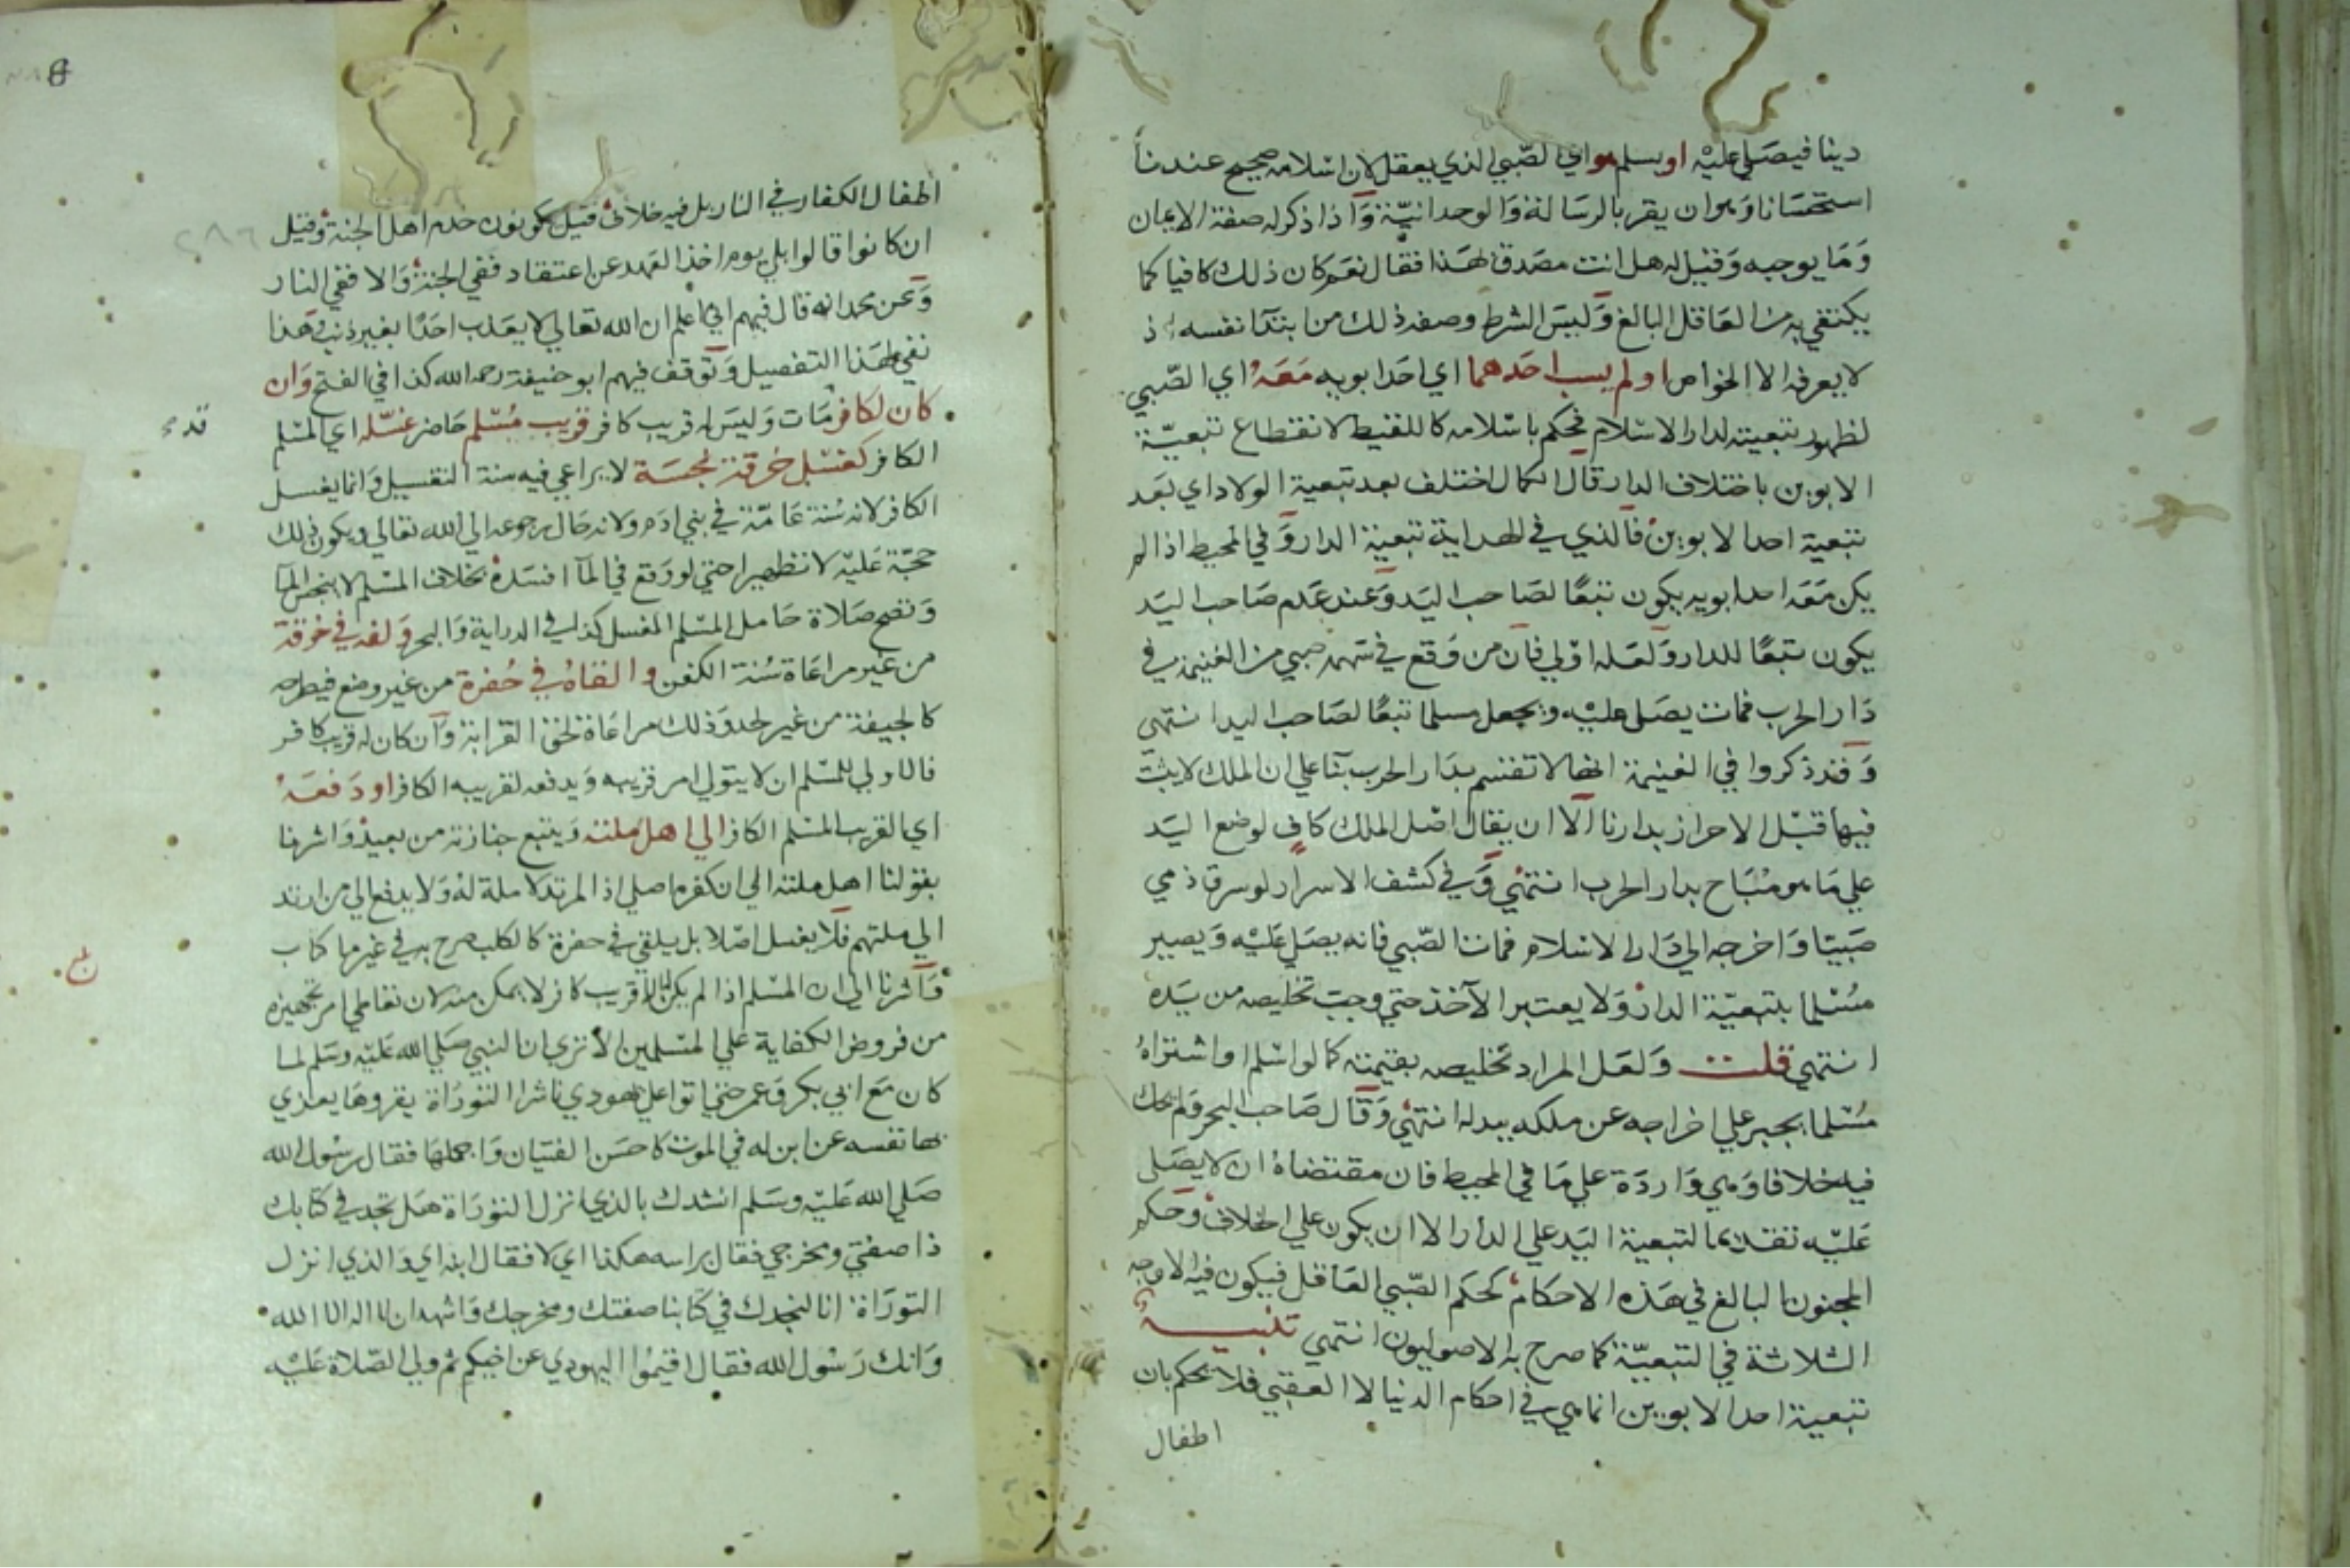 دينا فيصلي عليه او يسلم هو اي الصبي الذي يعقل لان اسلامه صحيح عندنا
استحسانا وهو ان يقر بالرسالة والوحدانية واذا ذكر له صفة الايمان
وما يوجبه وقيل له هل انت مصدق لهذا فقال نعم كان ذلك كافيا كما
يكتفي به من العاقل البالغ وليس الشرط وصفه ذلك من ابتدآ نفسه اذ
لا يعرفه الا الخواص او لم يسب احدهما اي احد ابويه معه اي الصبي
لظهور تبعيته لدار الاسلام فيحكم باسلامه كاللقيط لانقطاع تبعيّة
الابوين باختلاف الدار قال الكمال اختلف بعد تبعية الولاد اي بعد
تبعية احد الابوين فالذي في الهداية تبعية الدار وفي المحيط اذا لم
يكن معه احد ابويه يكون تبعًا لصاحب اليد وعند عدم صاحب اليد
يكون تبعًا للدار ولعله اولي فان من وقع في سهمه صبي من الغنيمة في
دار الحرب فمات يصلي عليه ويجعل مسلما تبعًا لصاحب اليد انتهى
وقد ذكروا في الغنيمة انها لا تقسم بدار الحرب بنآ علي ان الملك لا يثبت
فيها قبل الاحراز بدارنا الا ان يقال اصل الملك كافٍ لوضع اليد
علي ما هو مباح بدار الحرب انتهى وفي كشف الاسرار لو سرق ذمي
صبيا واخرجه الي دار الاسلام فمات الصبي فانه يصلي عليه ويصير
مسلما بتبعيّة الدار ولا يعتبر الآخذ حتي وجب تخليصه من يده
انتهى قلت ولعل المراد تخليصه بقيمته كما لو اسلم او اشتراه
مسلما يجبر علي اخراجه عن ملكه ببدله انتهى وقال صاحب البحر ولم يحك
فيه خلافا وهي واردة علي ما في المحيط فان مقتضاه ان لا يصلى
عليه تقديما لتبعية اليد علي الدار الا ان يكون علي الخلاف وحكم
المجنون البالغ في هذه الاحكام كحكم الصبي العاقل فيكون فيه الاوجه
الثلاثة في التبعيّة كما صرح به الاصوليون انتهى تنبيه
تبعية احد الابوين انما هي في احكام الدنيا لا العقبي فلا نحكم بان
اطفال
اطفال الكفار في النار بل فيه خلاف قيل يكونون خدم اهل الجنة وقيل
ان كانوا قالوا بلي يوم اخذ العهد عن اعتقاد ففي الجنة والا ففي النار
وعن محمد انه قال فيهم اني اعلم ان الله تعالي لا يعذب احدًا بغير ذنب وهذا
نفي لهذا التفصيل وتوقف فيهم ابو حنيفة رحمه الله كذا في الفتح وان
كان لكافر مات وليس له قريب كافر قريب مسلم حاضر غسله اي المسلم
الكافر كغسل خرقة نجسة لا يراعي فيه سنة التغسيل وانما يغسل
الكافر لانه سنة عامّة في بني ادم ولانه حال رجوعه الي الله تعالي ويكون ذلك
حجّة عليه لا تطهيرا حتي لو وقع في المآ افسده بخلاف المسلم لا ينجس المآ
وتصح صلاة حامل المسلم المغسل كذا في الدراية والبحر ولفه في خرقة
من غير مراعاة سنة الكفن والقاه في حفرة من غير وضع فيطرحه
كالجيفة من غير لحد وذلك مراعاة لحق القرابة وان كان له قريب كافر
فالاولي للمسلم ان لا يتولي امر قريبه ويدفعه لقريبه الكافر او دفعه
اي القريب المسلم الكافر الي اهل ملته ويتبع جنازته من بعيد واشرنا
بقولنا اهل ملته الي ان كفره اصلي اذ المرتد لا ملة له ولا يدفع الي من ارتد
الي ملتهم فلا يغسل اصلا بل يلقي في حفرة كالكلب صرح به في غير ما كتاب
واشرنا الي ان المسلم اذا لم يكن له الا قريب كافر لا يمكن منه لان تعاطي امر تجهيزه
من فروض الكفاية علي المسلمين الا تري ان النبي صلي الله عليه وسلم لما
كان مع ابي بكر وعمر حتي اتوا علي يهودي ناشرا التوراة يقروها يعزي
بها نفسه عن ابن له في الموت كاحسن الفتيان واجملها فقال رسول الله
صلي الله عليه وسلم انشدك بالذي انزل التوراة هل تجد في كتابك
ذا صفتي ومخرجي فقال براسه هكذا اي لا فقال ابنه اي والذي انزل
التوراة انا لنجدك في كتابنا صفتك ومخرجك واشهد ان لا اله الا الله
وانك رسول الله فقال اقيموا اليهودي عن اخيكم ثم ولي الصلاة عليه